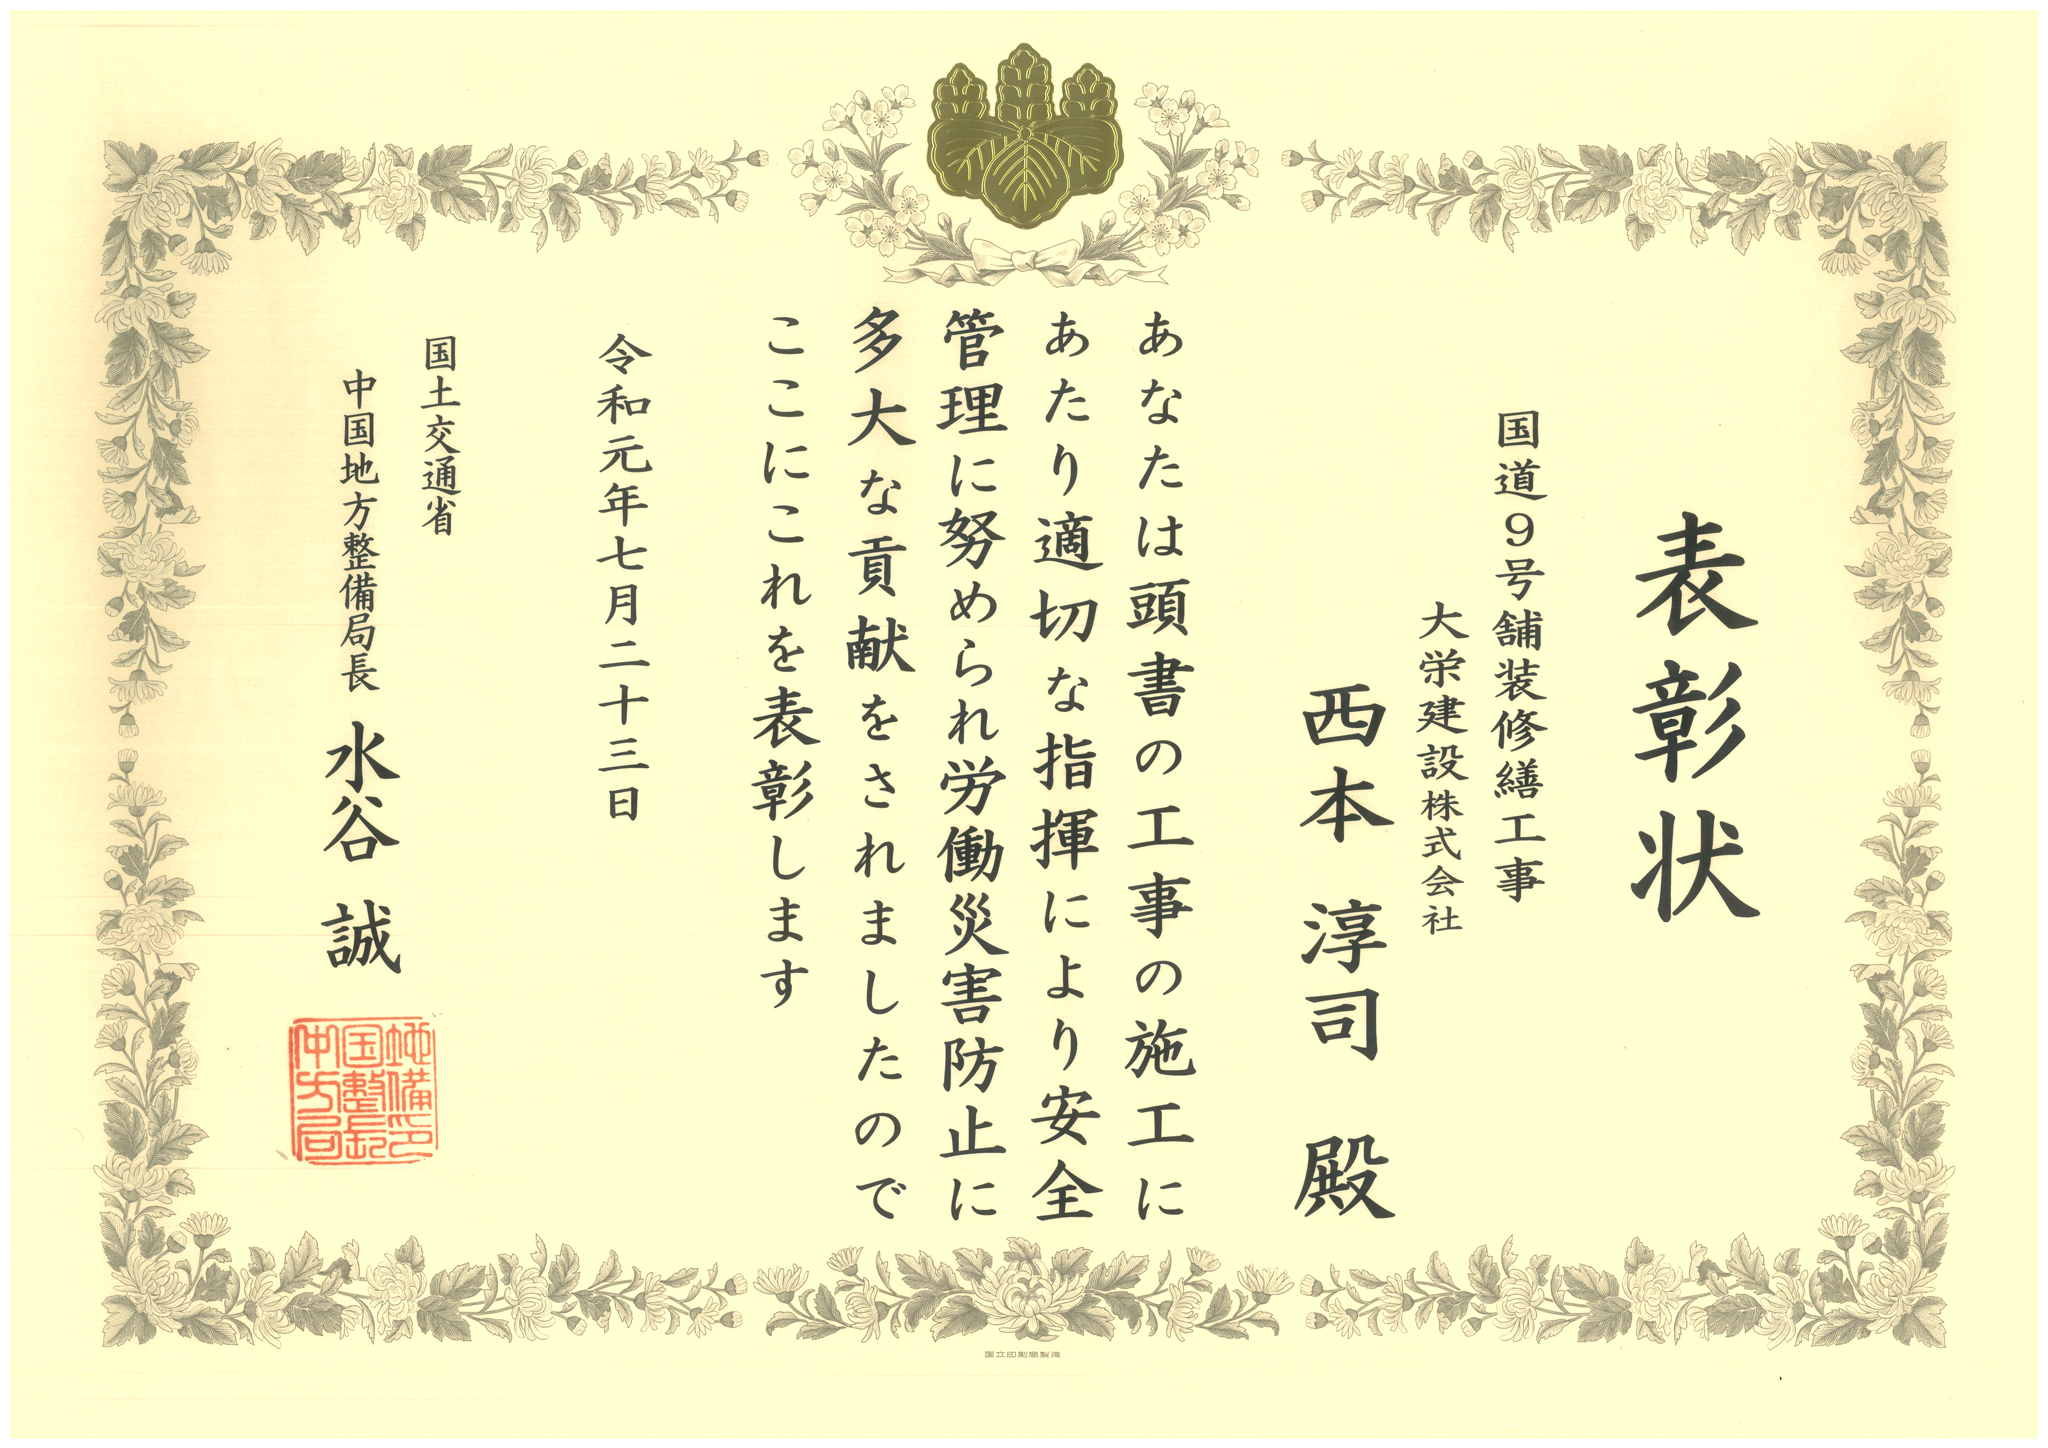 表彰状
国道9号舗装修繕工事
大栄建設株式会社
西本 淳司 殿
あなたは頭書の工事の施工に
あたり適切な指揮により安全
管理に努められ労働災害防止に
多大な貢献をされましたので
ここにこれを表彰します
令和元年七月二十三日
国土交通省
中国地方整備局長 水谷 誠
中国地
方整備
局長印
国立印刷局製造